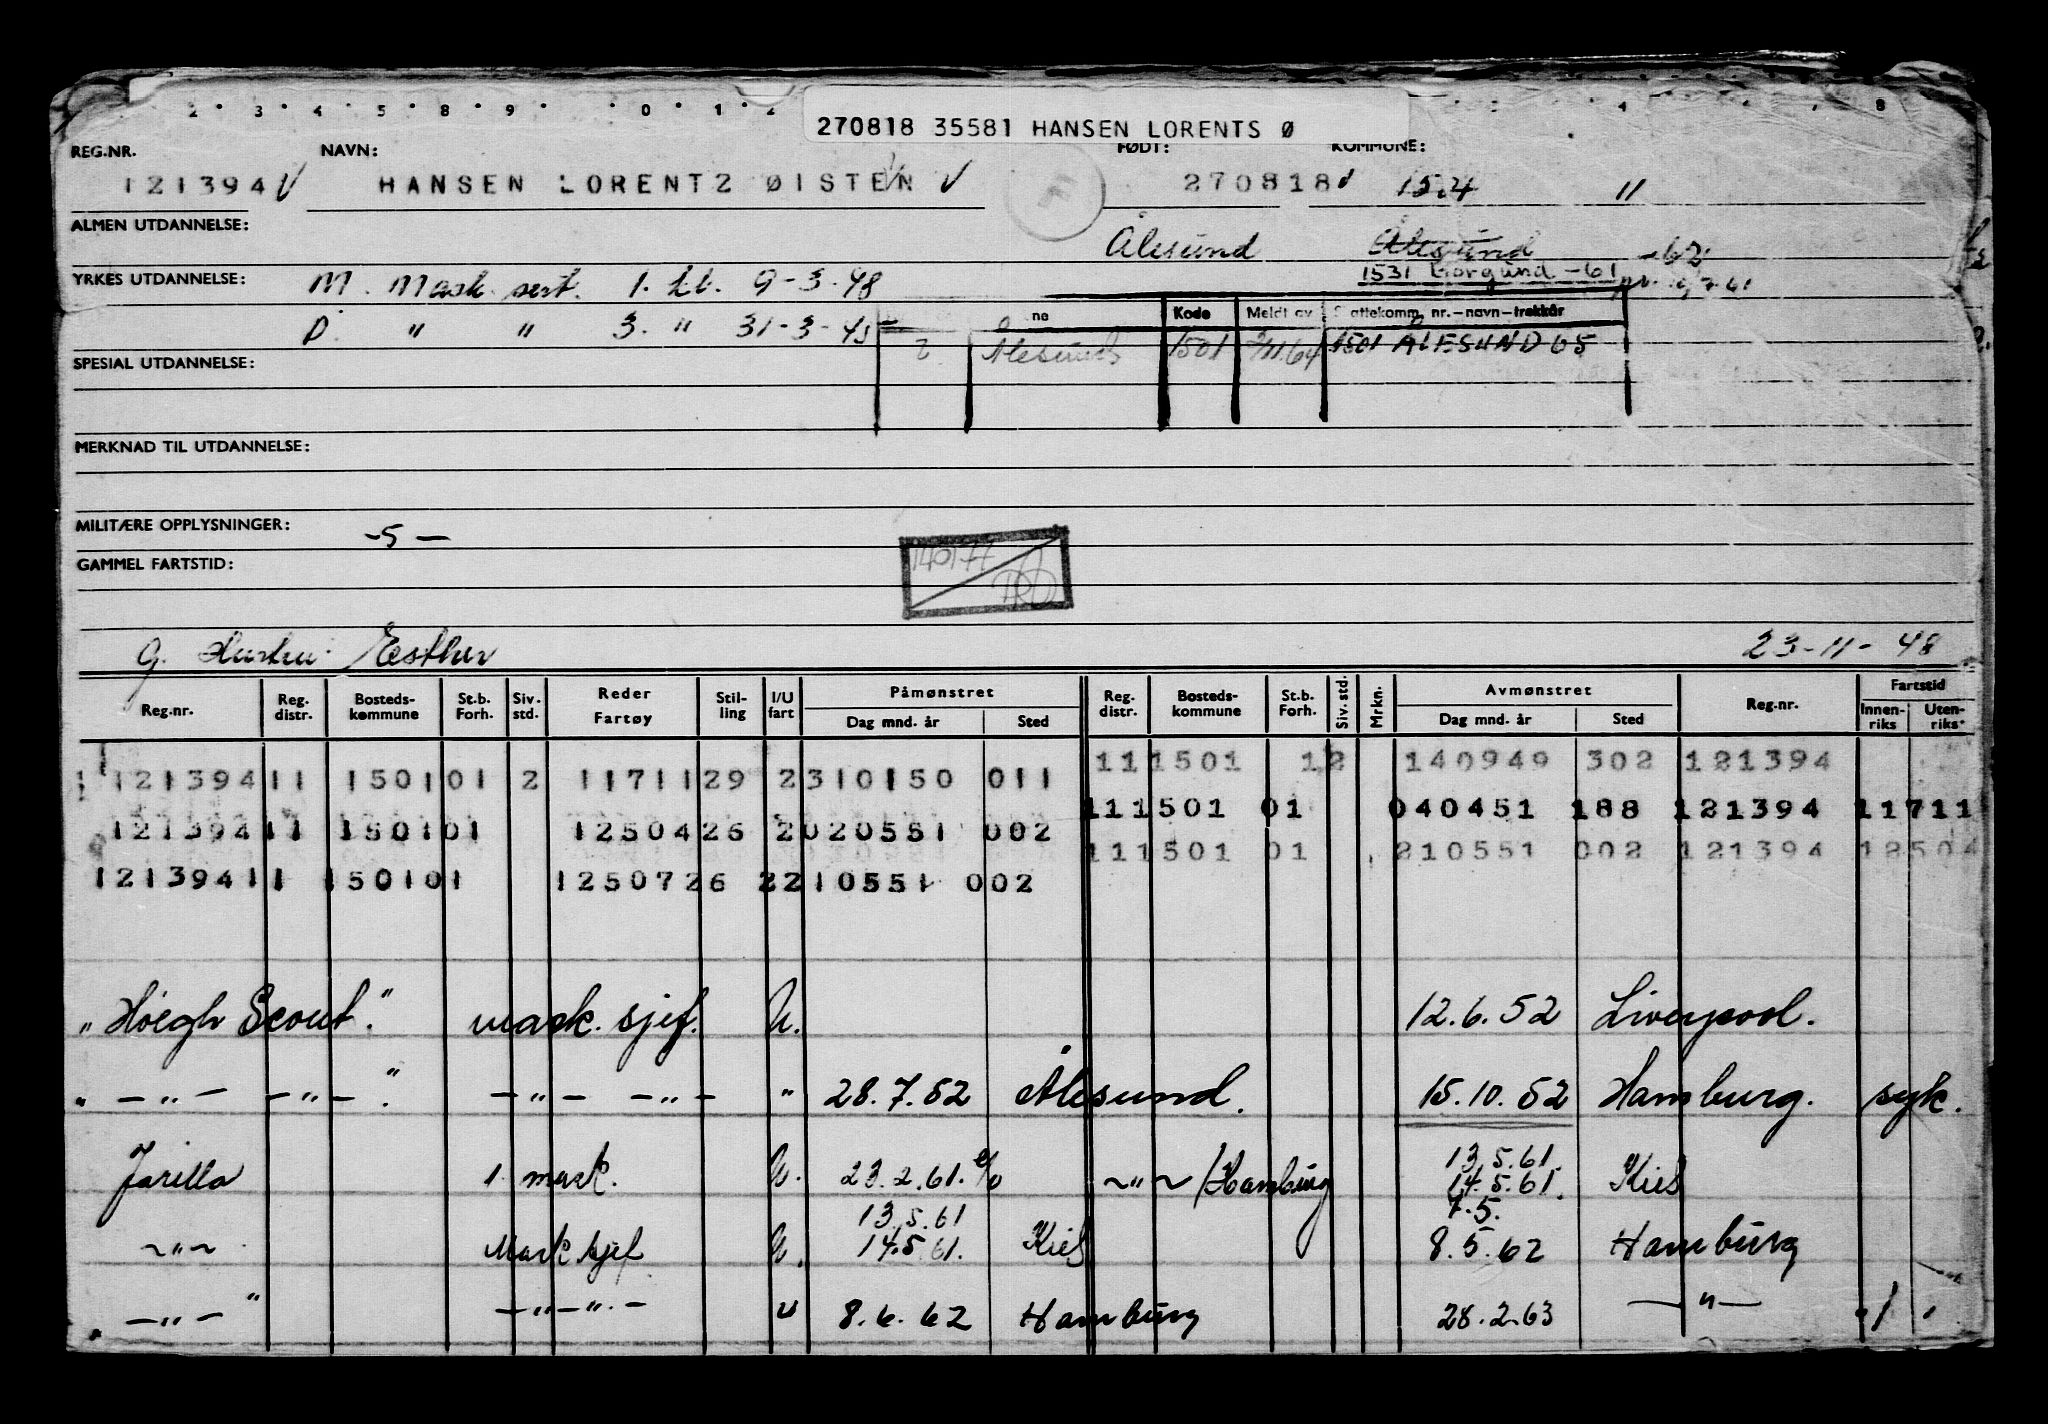 2 · 3 · 4 · 5 · 8 · 9 · 0 · 1 · 2 4 8
270818 35581 HANSEN LORENTS Ø
REG.NR. NAVN: FØDT: KOMMUNE:
121394 V HANSEN LORENTZ ØISTEN V F 270818 1524 11
ALMEN UTDANNELSE:
Ålesund Ålesund -62
YRKES UTDANNELSE: M. Mask. sert. 1. kl. 9-3-48 1531 Borgund -61
ne Kode Meldt av Skattekomm. nr.-navn-trekkår
D. " " 3. " 31-3-45 2 Ålesund 1501 2/11.64 1501 ÅLESUND 65
SPESIAL UTDANNELSE:
MERKNAD TIL UTDANNELSE:
MILITÆRE OPPLYSNINGER: -5-
GAMMEL FARTSTID:
140177
g. Hustru: Esther 23-11-48
Reg.nr. Reg. distr. Bosteds-kommune St.b. Forh. Siv. std. Reder Fartøy Stil-ling I/U fart Påmønstret Dag mnd. år Sted Reg. distr. Bosteds-kommune St.b. Forh. Siv. std. Mrkn. Avmønstret Dag mnd. år Sted Reg.nr. Fartstid Innen-riks Uten-riks
111501 12 140949 302 121394
121394 11 1501 01 2 11711 29 2 310150 011
111501 01 040451 188 121394 11711
121394 11 1501 01 12504 26 2 020551 002
111501 01 210551 002 121394 12504
121394 11 1501 01 12507 26 2 210551 002
"Høegh Scout." mask. sjef. U. 12.6.52 Liverpool.
" -"- -"-." -"- -"- " 28.7.52 Ålesund. 15.10.52 Hamburg. syk.
13.5.61
Jarilla 1 mask. U. 23.2.61. ~"~ /Hamburg 14.5.61. Kiel
13.5.61 7.5.
~"~ Mask sjef U. 14.5.61. Kiel 8.5.62 Hamburg
" -"- " -"-"- U 8.6.62 Hamburg 28.2.63 -"-